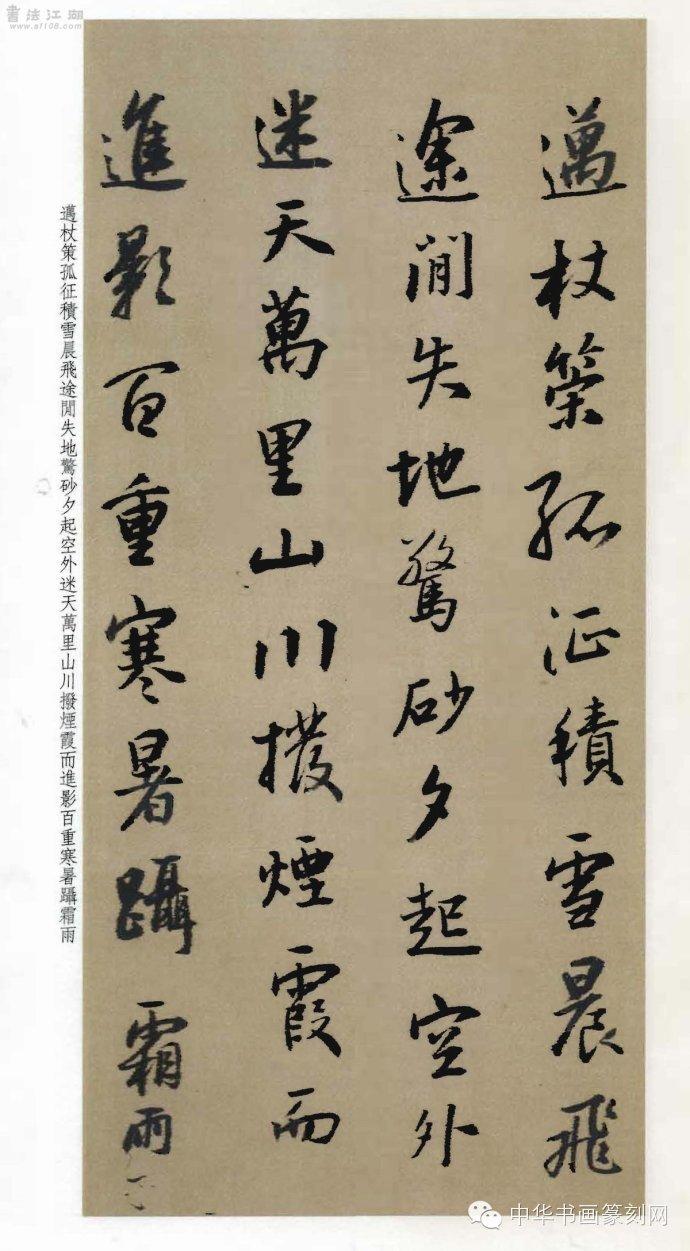 書法江湖
www.sf108.com
邁杖策孤征積雪晨飛
途閒失地驚砂夕起空外
迷天萬里山川撥煙霞而
進影百重寒暑躡霜雨
邁杖策孤征積雪晨飛途閒失地驚砂夕起空外迷天萬里山川撥煙霞而進影百重寒暑躡霜雨
中华书画篆刻网